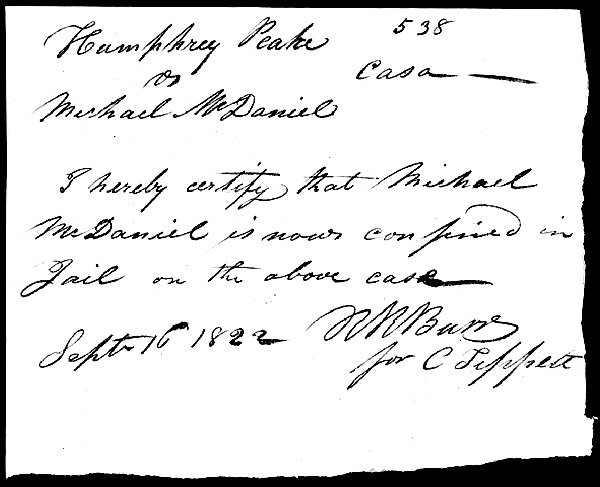 Humphrey Peake 538
vs Casa
Michael McDaniel
I hereby certify that Michael
McDaniel is now confined in
Jail on the above case
Septr 16 1822 R R Burr
for C Tippett